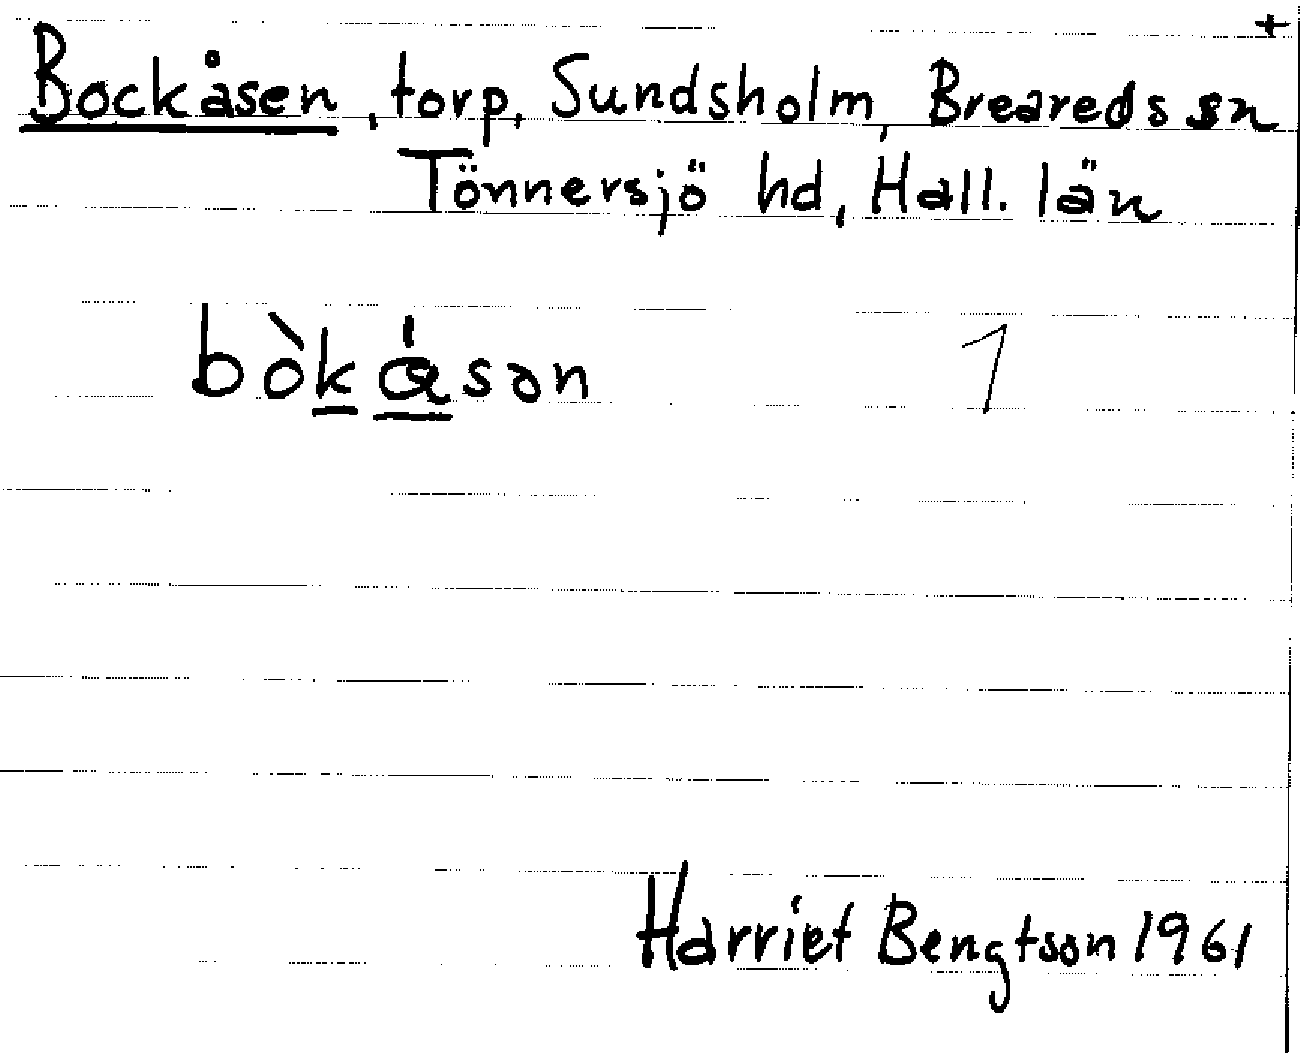 +
Bockåsen, torp, Sundsholm, Breareds sn
Tönnersjö hd, Hall. län
bòkåsən 1
Harriet Bengtson 1961